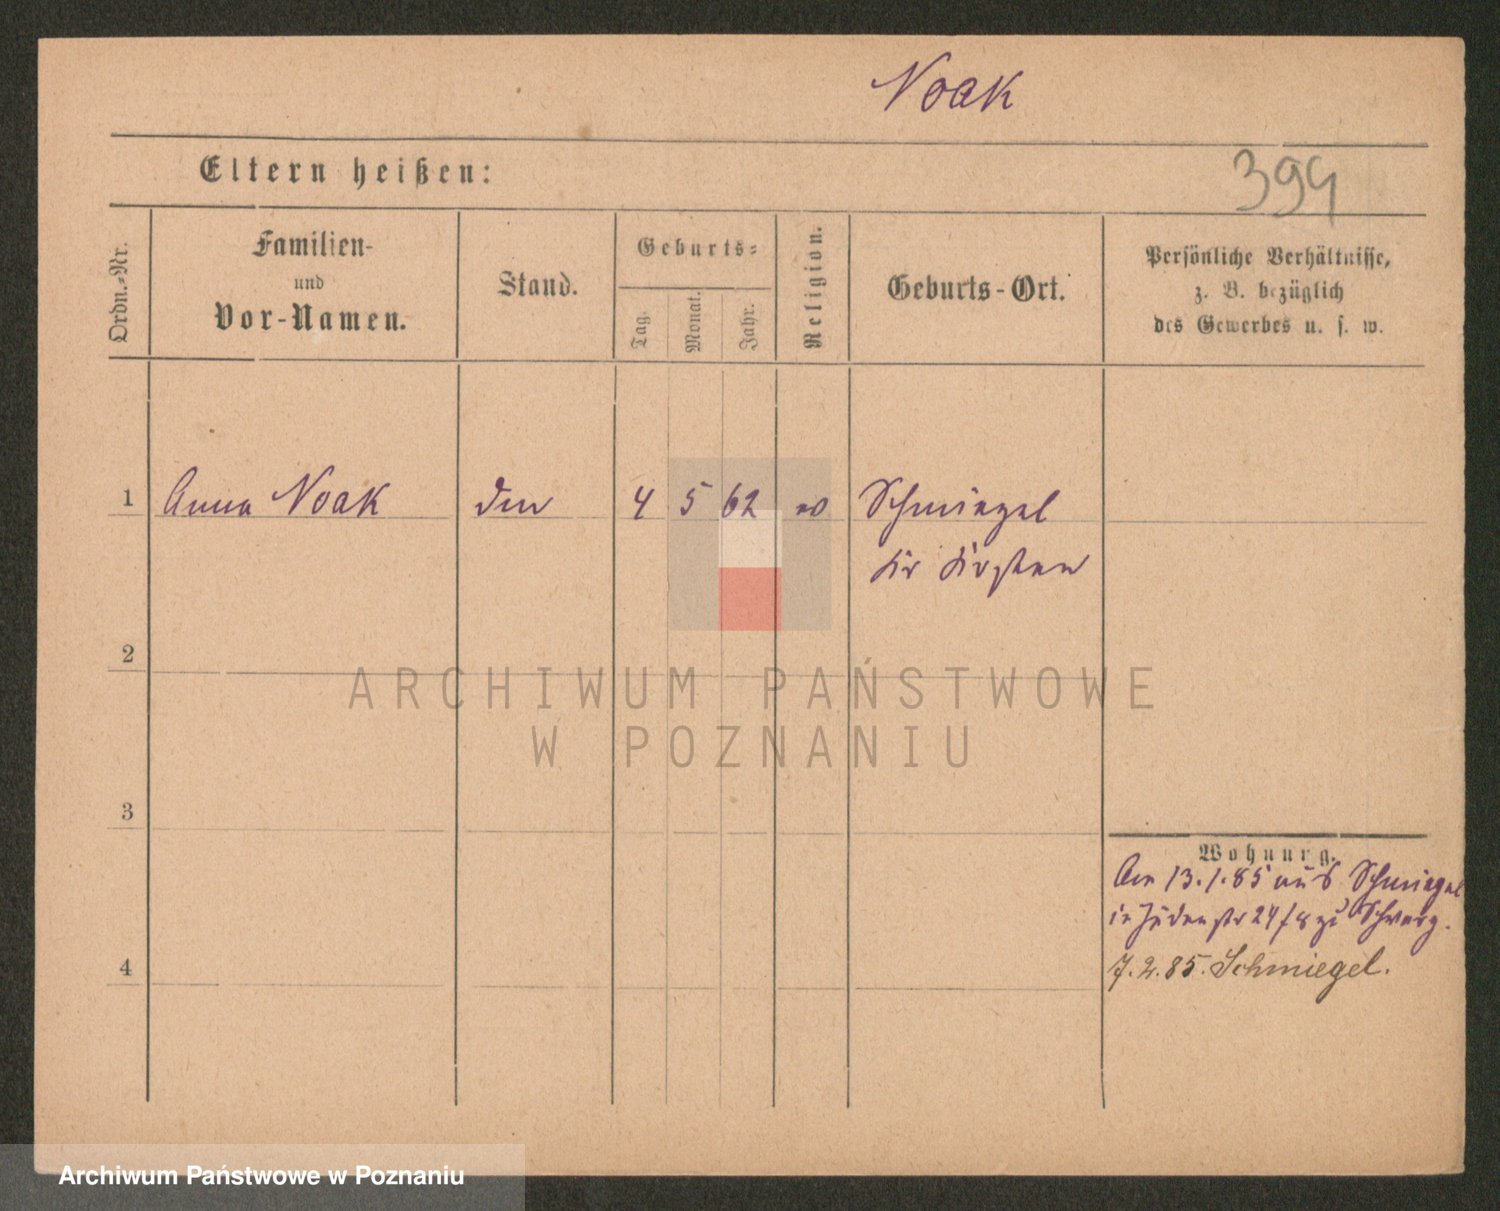 Noak
Eltern heißen:
394
Ordn.-Nr.
Familien-
und
Vor-Namen.
Stand.
Geburts-
Tag.
Monat.
Jahr.
Religion.
Geburts-Ort.
Persönliche Verhältnisse,
z. B. bezüglich
des Gewerbes u. s. w.
1 Anna Noak 4 5 62 Schmiegel
Kr Kosten
2
ARCHIWUM PAŃSTWOWE
W POZNANIU
3
Wohnung.
Am 13.1.85 aus Schmiegel
in Judenstr 24/8 zu
4
7.2.85. Schmiegel.
Archiwum Państwowe w Poznaniu